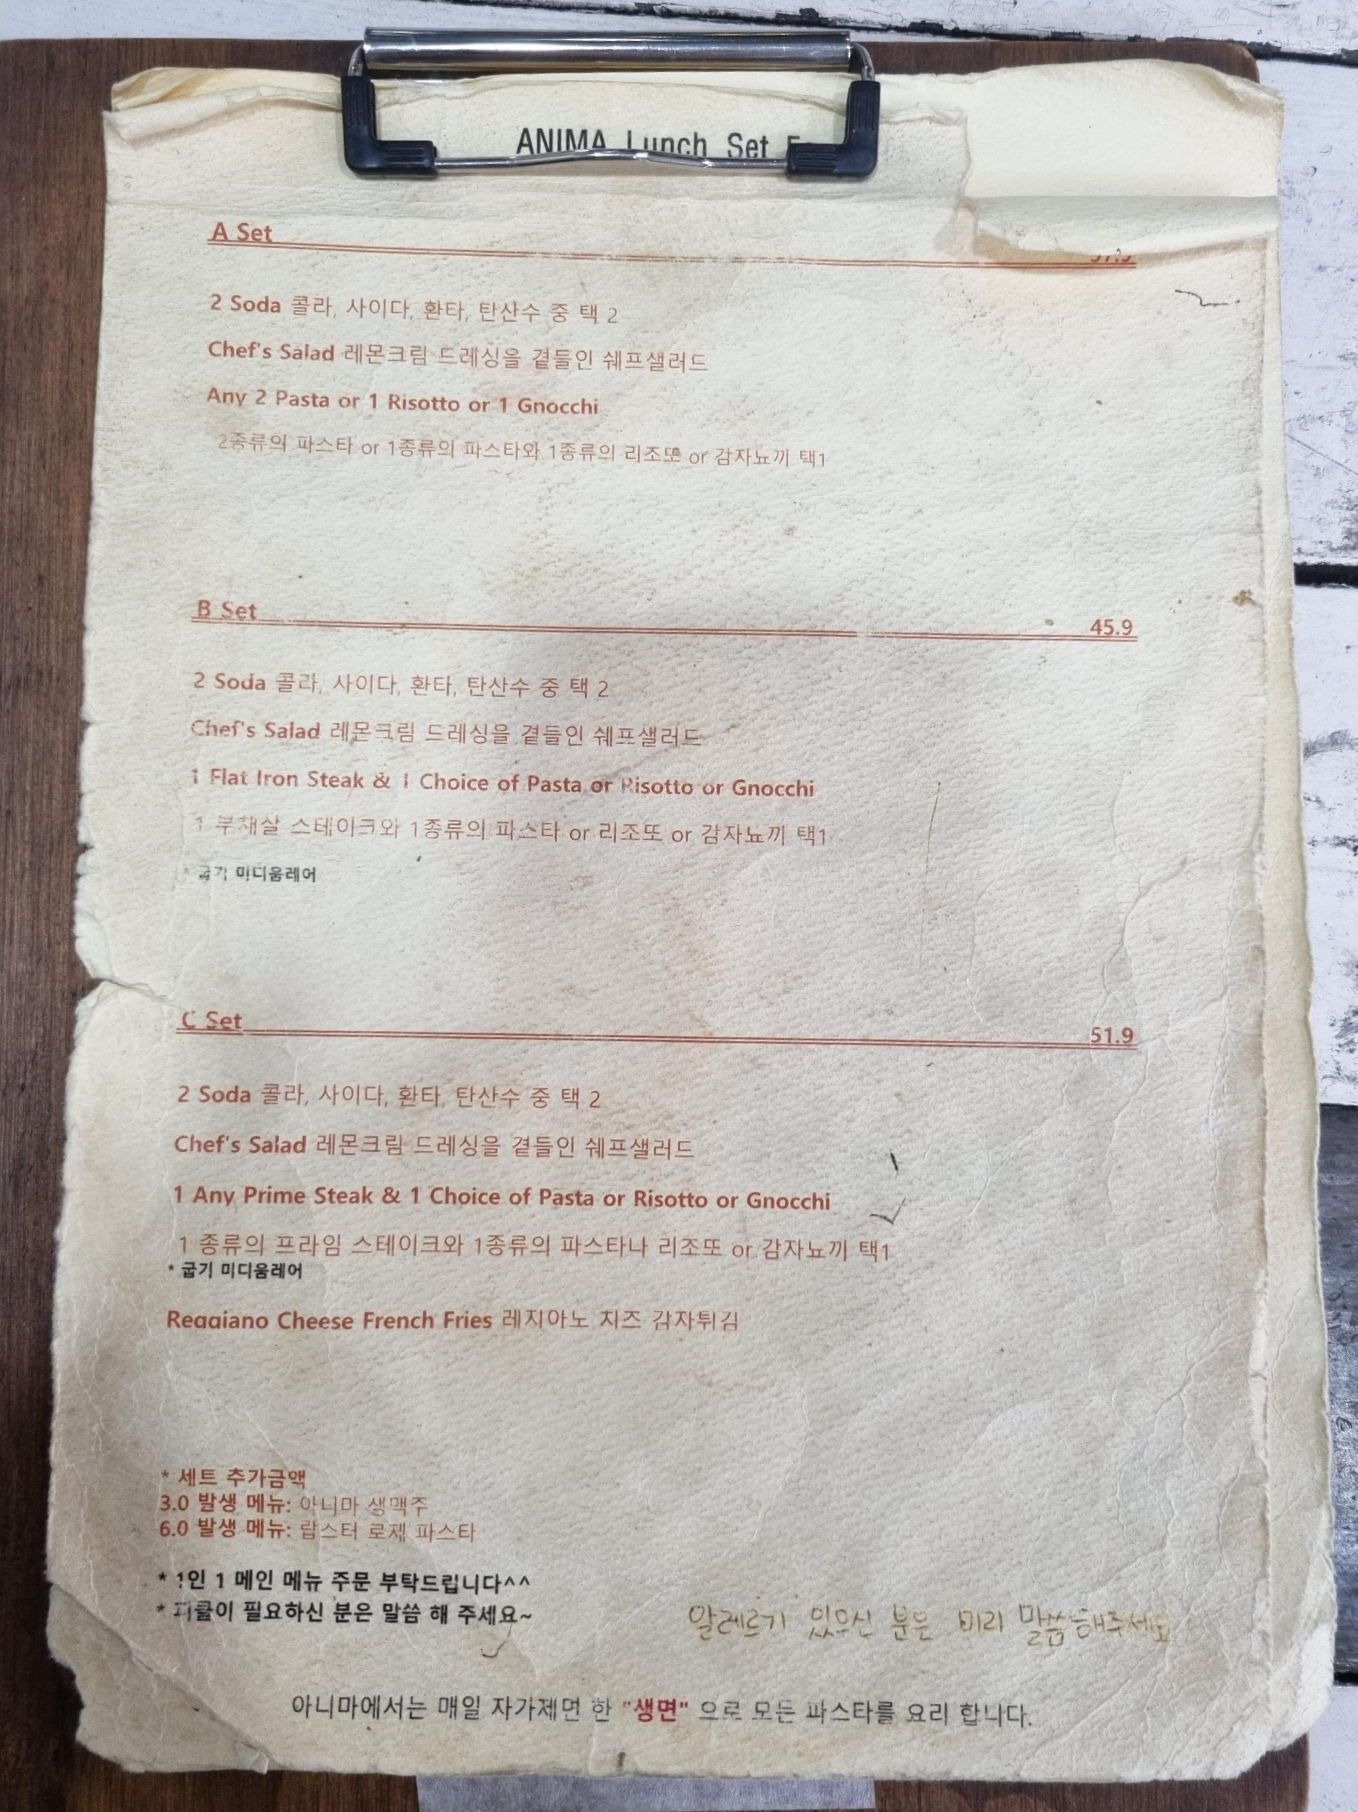 ANIMA Lunch Set
A Set
2 Soda 콜라, 사이다, 환타, 탄산수 중 택 2
Chef's Salad 레몬크림 드레싱을 곁들인 쉐프샐러드
Any 2 Pasta or 1 Risotto or 1 Gnocchi
2종류의 파스타 or 1종류의 파스타와 1종류의 리조또 or 감자뇨끼 택1
B Set 45.9
2 Soda 콜라, 사이다, 환타, 탄산수 중 택 2
Chef's Salad 레몬크림 드레싱을 곁들인 쉐프샐러드
1 Flat Iron Steak & 1 Choice of Pasta or Risotto or Gnocchi
1 부채살 스테이크와 1종류의 파스타 or 리조또 or 감자뇨끼 택1
* 굽기 미디움레어
C Set 51.9
2 Soda 콜라, 사이다, 환타, 탄산수 중 택 2
Chef's Salad 레몬크림 드레싱을 곁들인 쉐프샐러드
1 Any Prime Steak & 1 Choice of Pasta or Risotto or Gnocchi
1 종류의 프라임 스테이크와 1종류의 파스타나 리조또 or 감자뇨끼 택1
* 굽기 미디움레어
Reggiano Cheese French Fries 레지아노 치즈 감자튀김
* 세트 추가금액
3.0 발생 메뉴: 아니마 생맥주
6.0 발생 메뉴: 랍스터 로제 파스타
* 1인 1 메인 메뉴 주문 부탁드립니다^^
* 피클이 필요하신 분은 말씀 해 주세요~
알레르기 있으신 분은 미리 말씀해주세요
아니마에서는 매일 자가제면 한 "생면" 으로 모든 파스타를 요리 합니다.